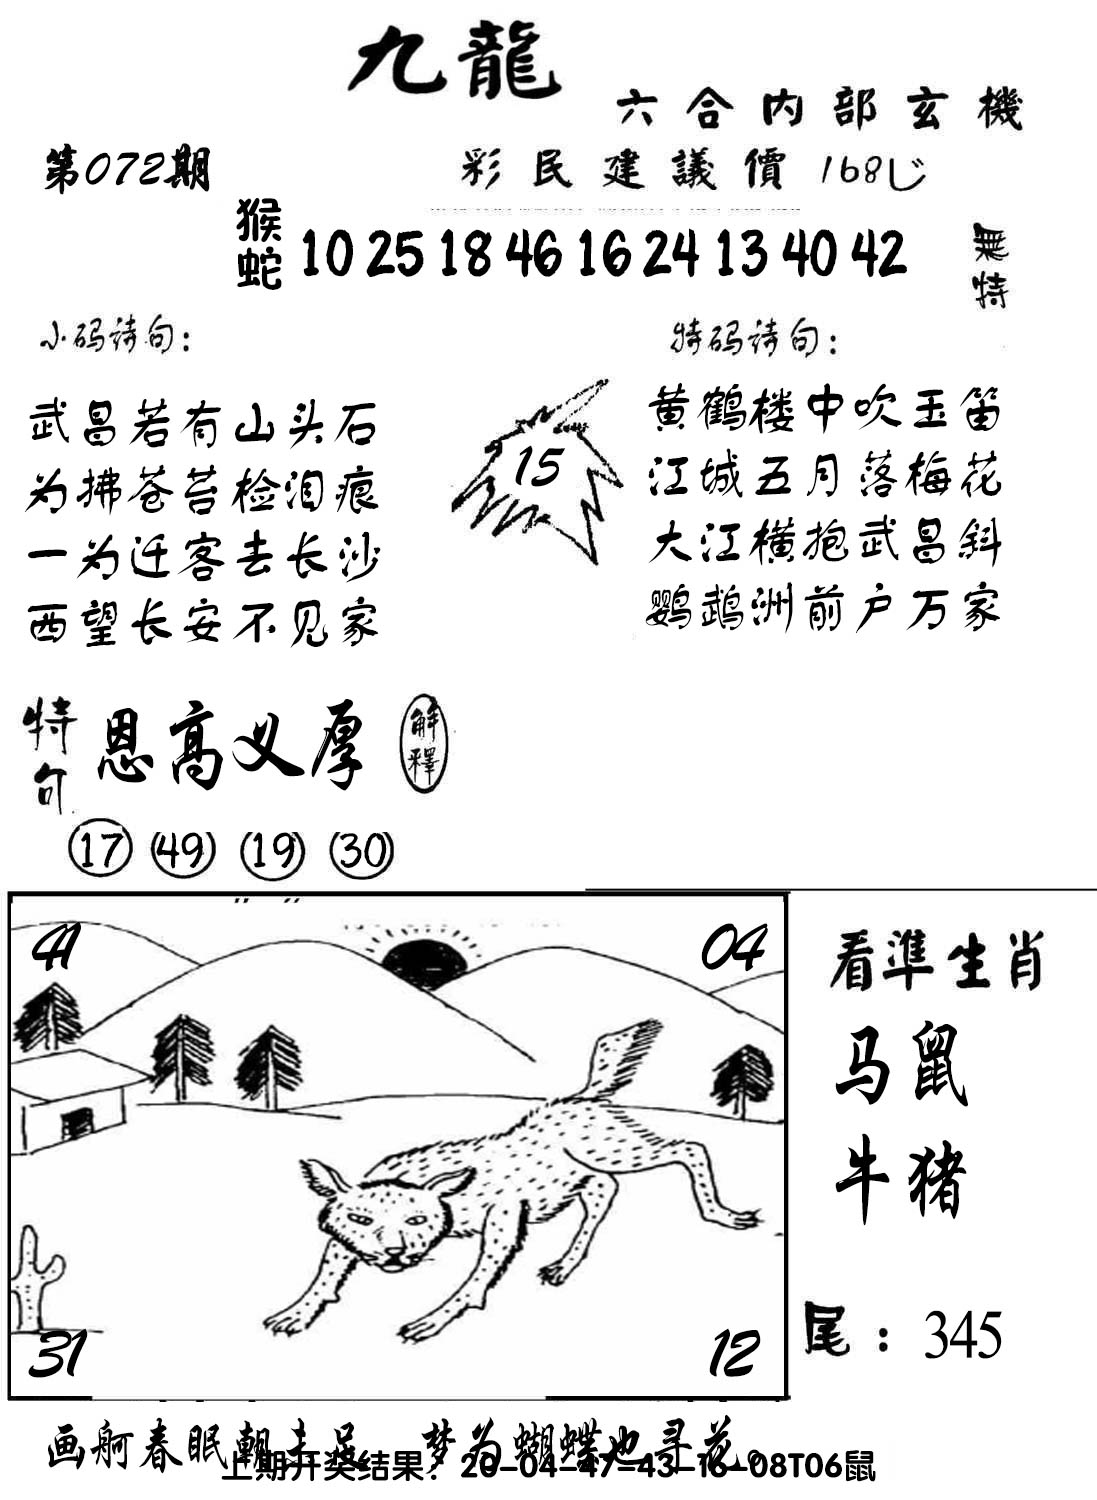 九龍
六合内部玄機
第072期
彩民建議價 168
猴蛇 10 25 18 46 16 24 13 40 42 無特
小码诗句：
特码诗句：
武昌若有山头石
为拂苍苔检泪痕
一为迁客去长沙
西望长安不见家
15
黄鹤楼中吹玉笛
江城五月落梅花
大江横抱武昌斜
鹦鹉洲前户万家
特句 恩高义厚 解釋
17 49 19 30
41 04
31 12
看準生肖
马鼠
牛猪
尾：345
画舸春眠朝未足 梦为蝴蝶也寻花。
上期开奖结果：20-04-47-43-16-08T06鼠